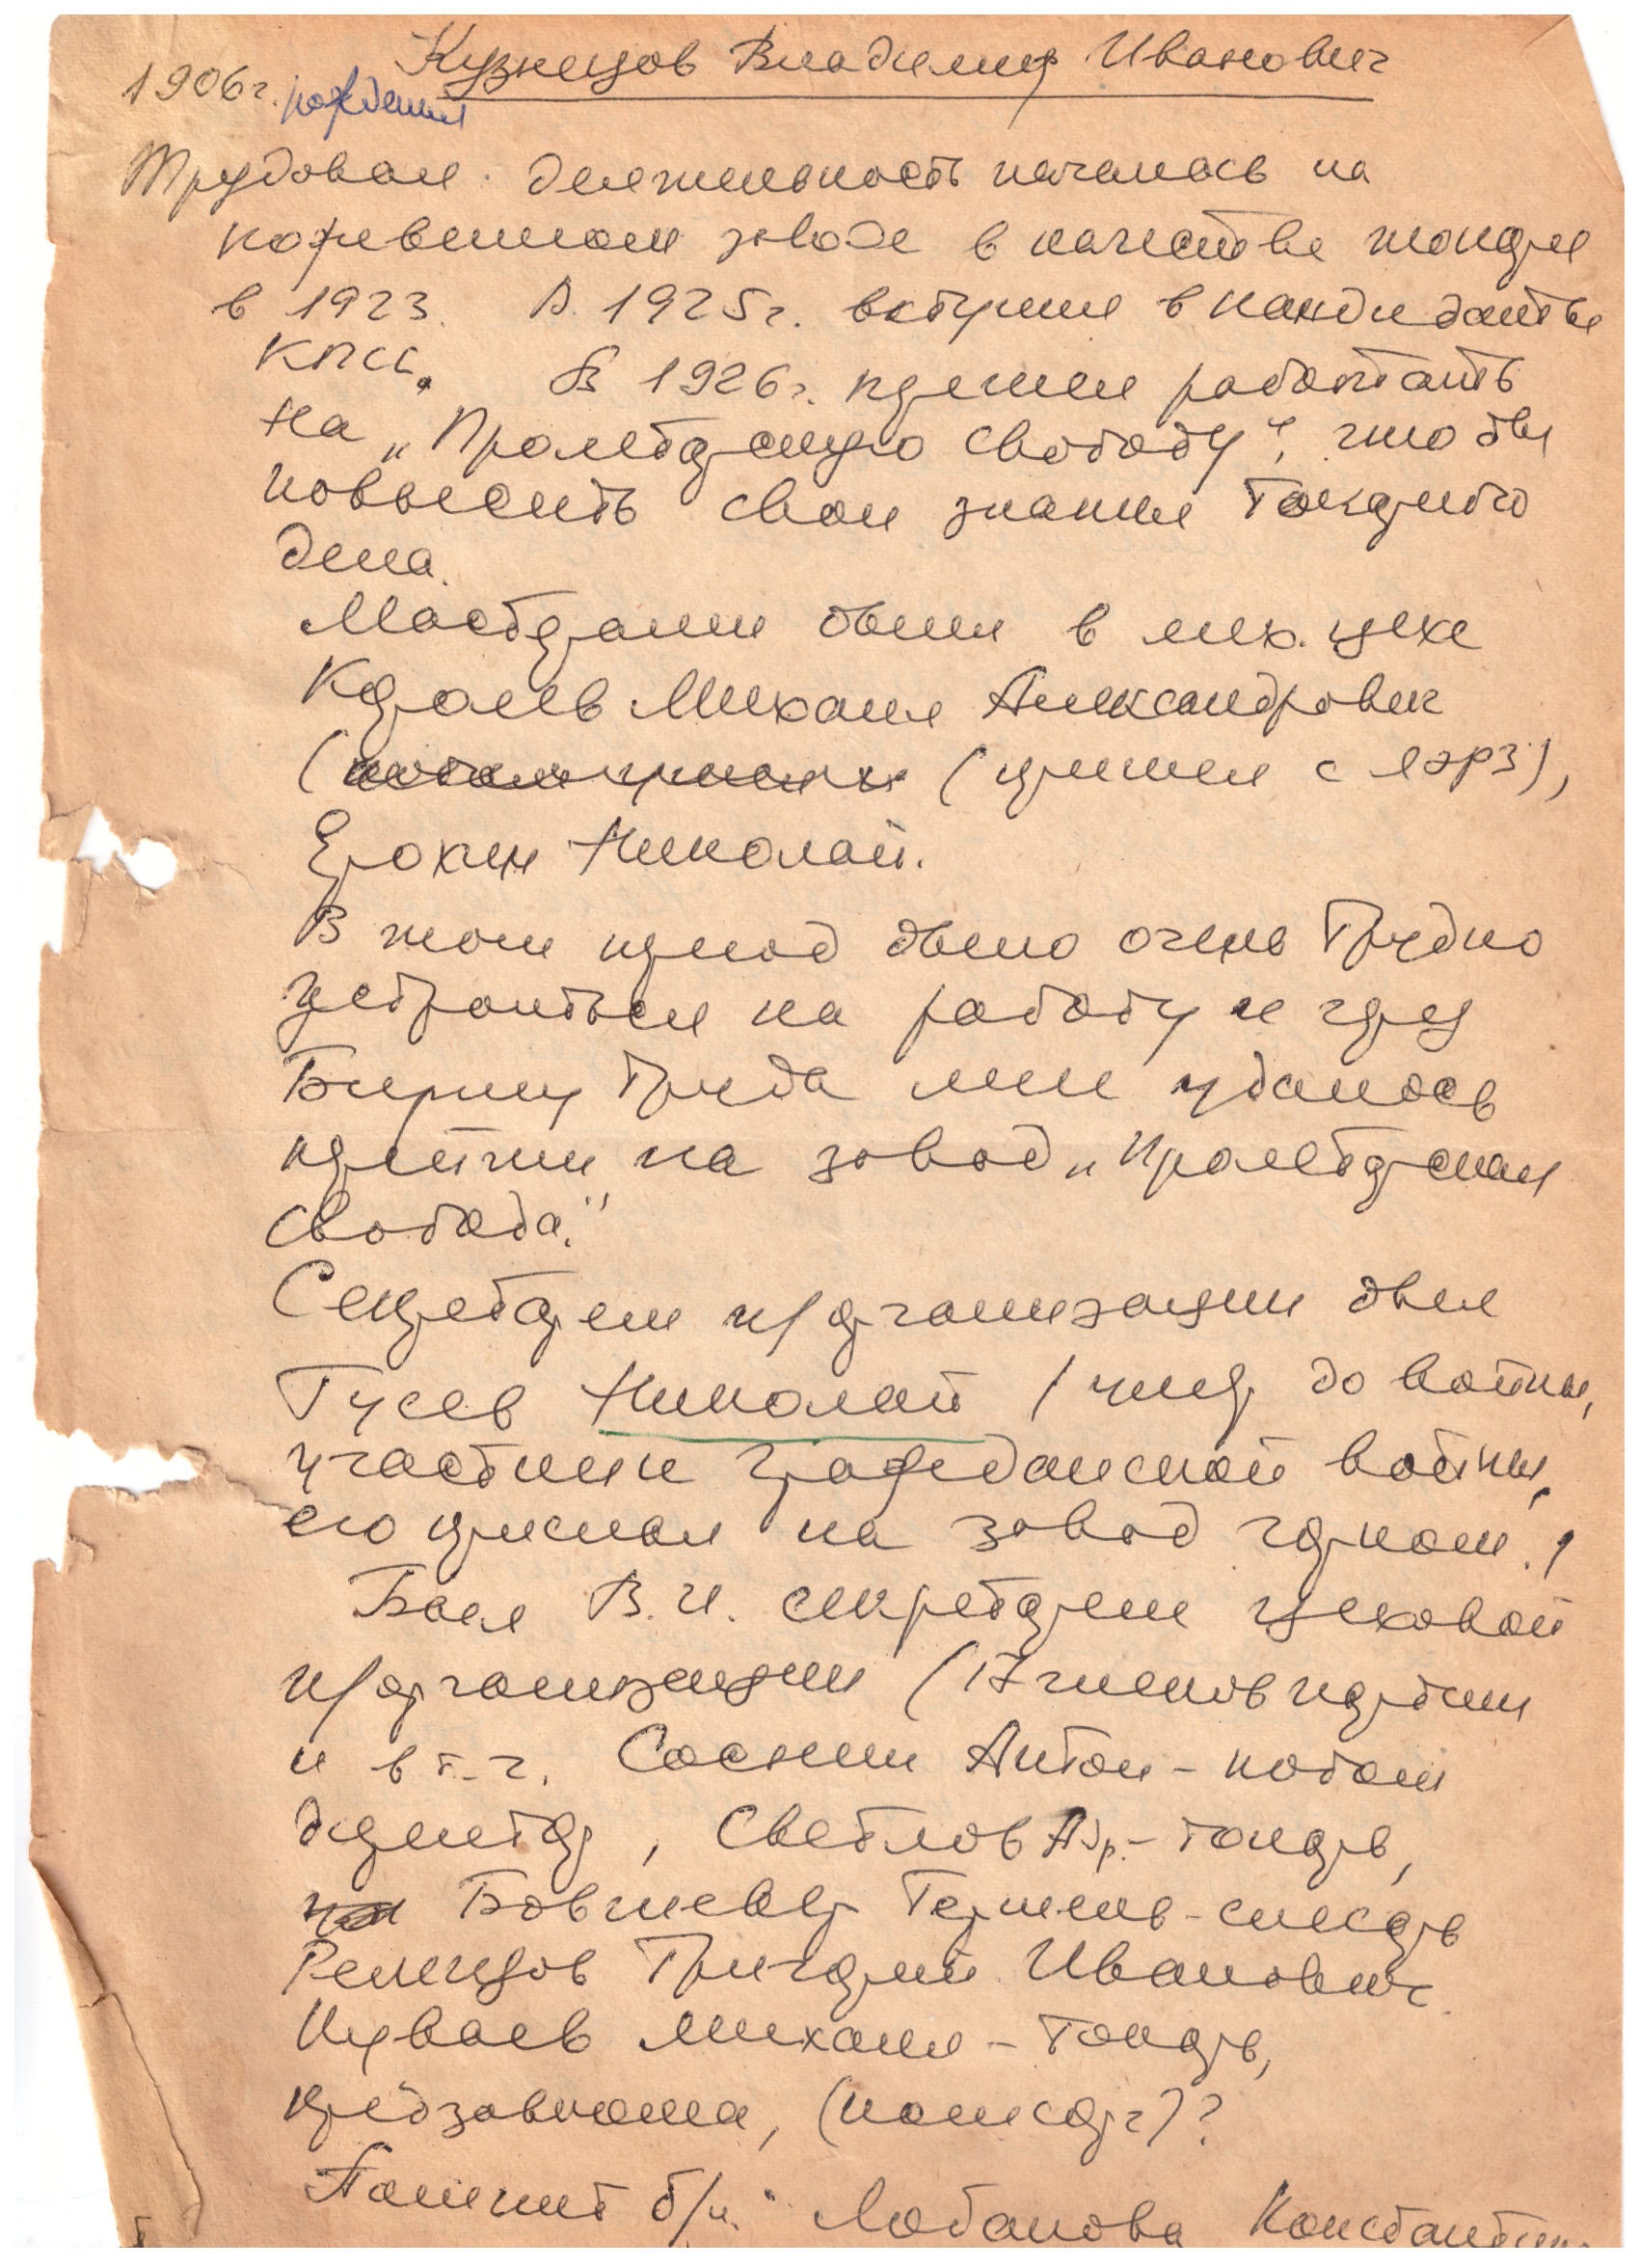 Кузнецов Владимир Иванович
1906 г. рождения
Трудовая деятельность началась на
кожевенном заводе в качестве токаря
в 1923. В 1925 г. вступил в кандидаты
КПСС. В 1926 г. пришел работать
на „Пролетарскую свободу", чтобы
повысить свои знания токарного
дела.
Мастерами были в мех. цехе
Королев Михаил Александрович
( (пришел с ЯЭРЗ),
Ерохин Николай.
В том период было очень трудно
устроиться на работу и через
Биржу Труда мне удалось
прийти на завод „Пролетарская
свобода."
Секретарем п/организации был
Гусев Николай (умер до войны,
участник гражданской войны,
его прислал на завод горком.)
Был В.И. секретарем цеховой
п/организации (17 членов партии
и в т.ч. Соснин Антон - потом
директор, Светлов Ар. - токарь,
Герман - слесарь
Ремизов Григорий Иванович
Куваев Михаил - токарь,
предзавкома, (комсорг)?
Помнит б/и. Лобанова